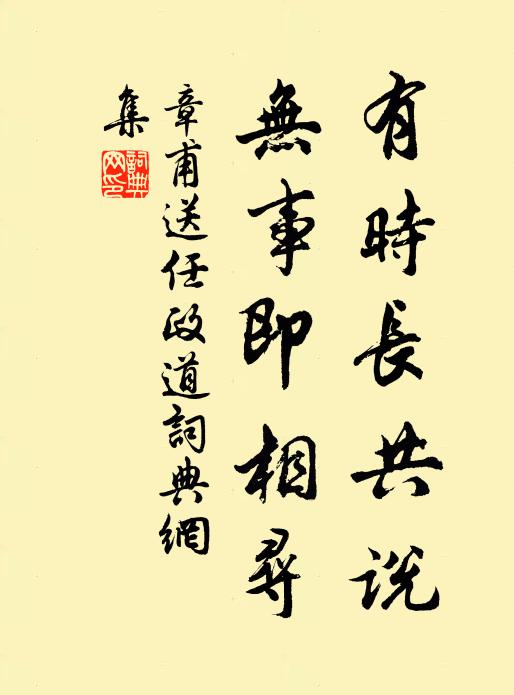 有時長共說
無事即相尋
章甫送任政道詞典網
集
詞典網印